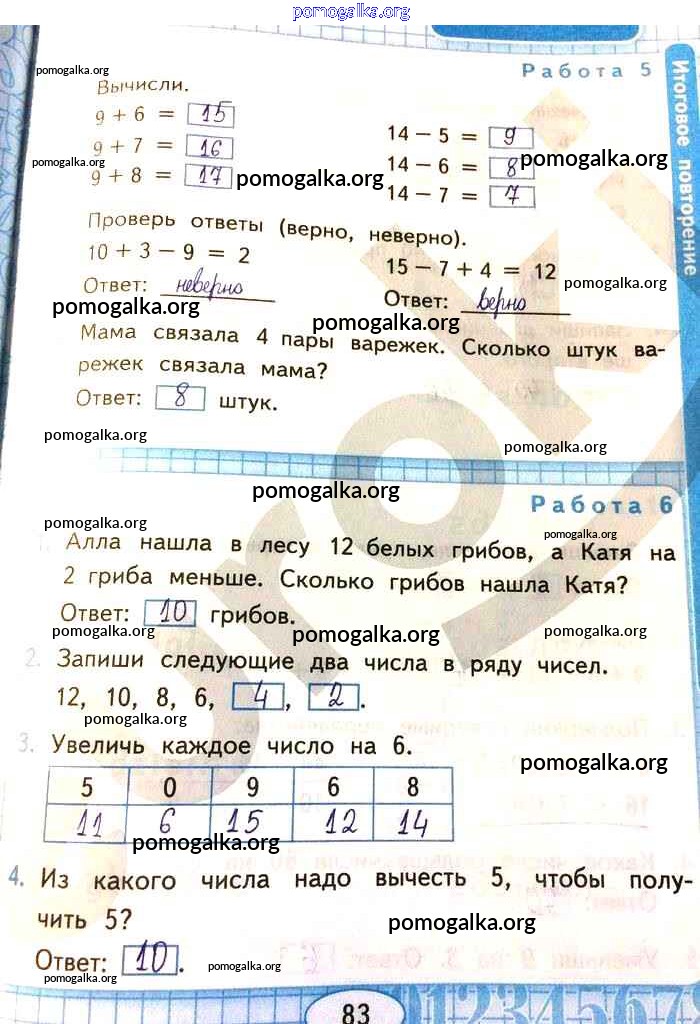 pomogalka.org
Работа 5
pomogalka.org
Вычисли.
9 + 6 = 15
9 + 7 = 16
9 + 8 = 17
14 − 5 = 9
14 − 6 = 8
14 − 7 = 7
pomogalka.org
pomogalka.org
pomogalka.org
Итоговое повторение
Проверь ответы (верно, неверно).
10 + 3 − 9 = 2
15 − 7 + 4 = 12
Ответ: неверно
Ответ: верно
pomogalka.org
pomogalka.org
pomogalka.org
Мама связала 4 пары варежек. Сколько штук ва-
режек связала мама?
Ответ: 8 штук.
pomogalka.org
pomogalka.org
pomogalka.org
Работа 6
pomogalka.org
pomogalka.org
1. Алла нашла в лесу 12 белых грибов, а Катя на
2 гриба меньше. Сколько грибов нашла Катя?
Ответ: 10 грибов.
pomogalka.org
pomogalka.org
pomogalka.org
2. Запиши следующие два числа в ряду чисел.
12, 10, 8, 6, 4, 2.
pomogalka.org
3. Увеличь каждое число на 6.
pomogalka.org
5 0 9 6 8
11 6 15 12 14
pomogalka.org
4. Из какого числа надо вычесть 5, чтобы полу-
чить 5?
pomogalka.org
Ответ: 10.
pomogalka.org
pomogalka.org
83
01234567
uroki